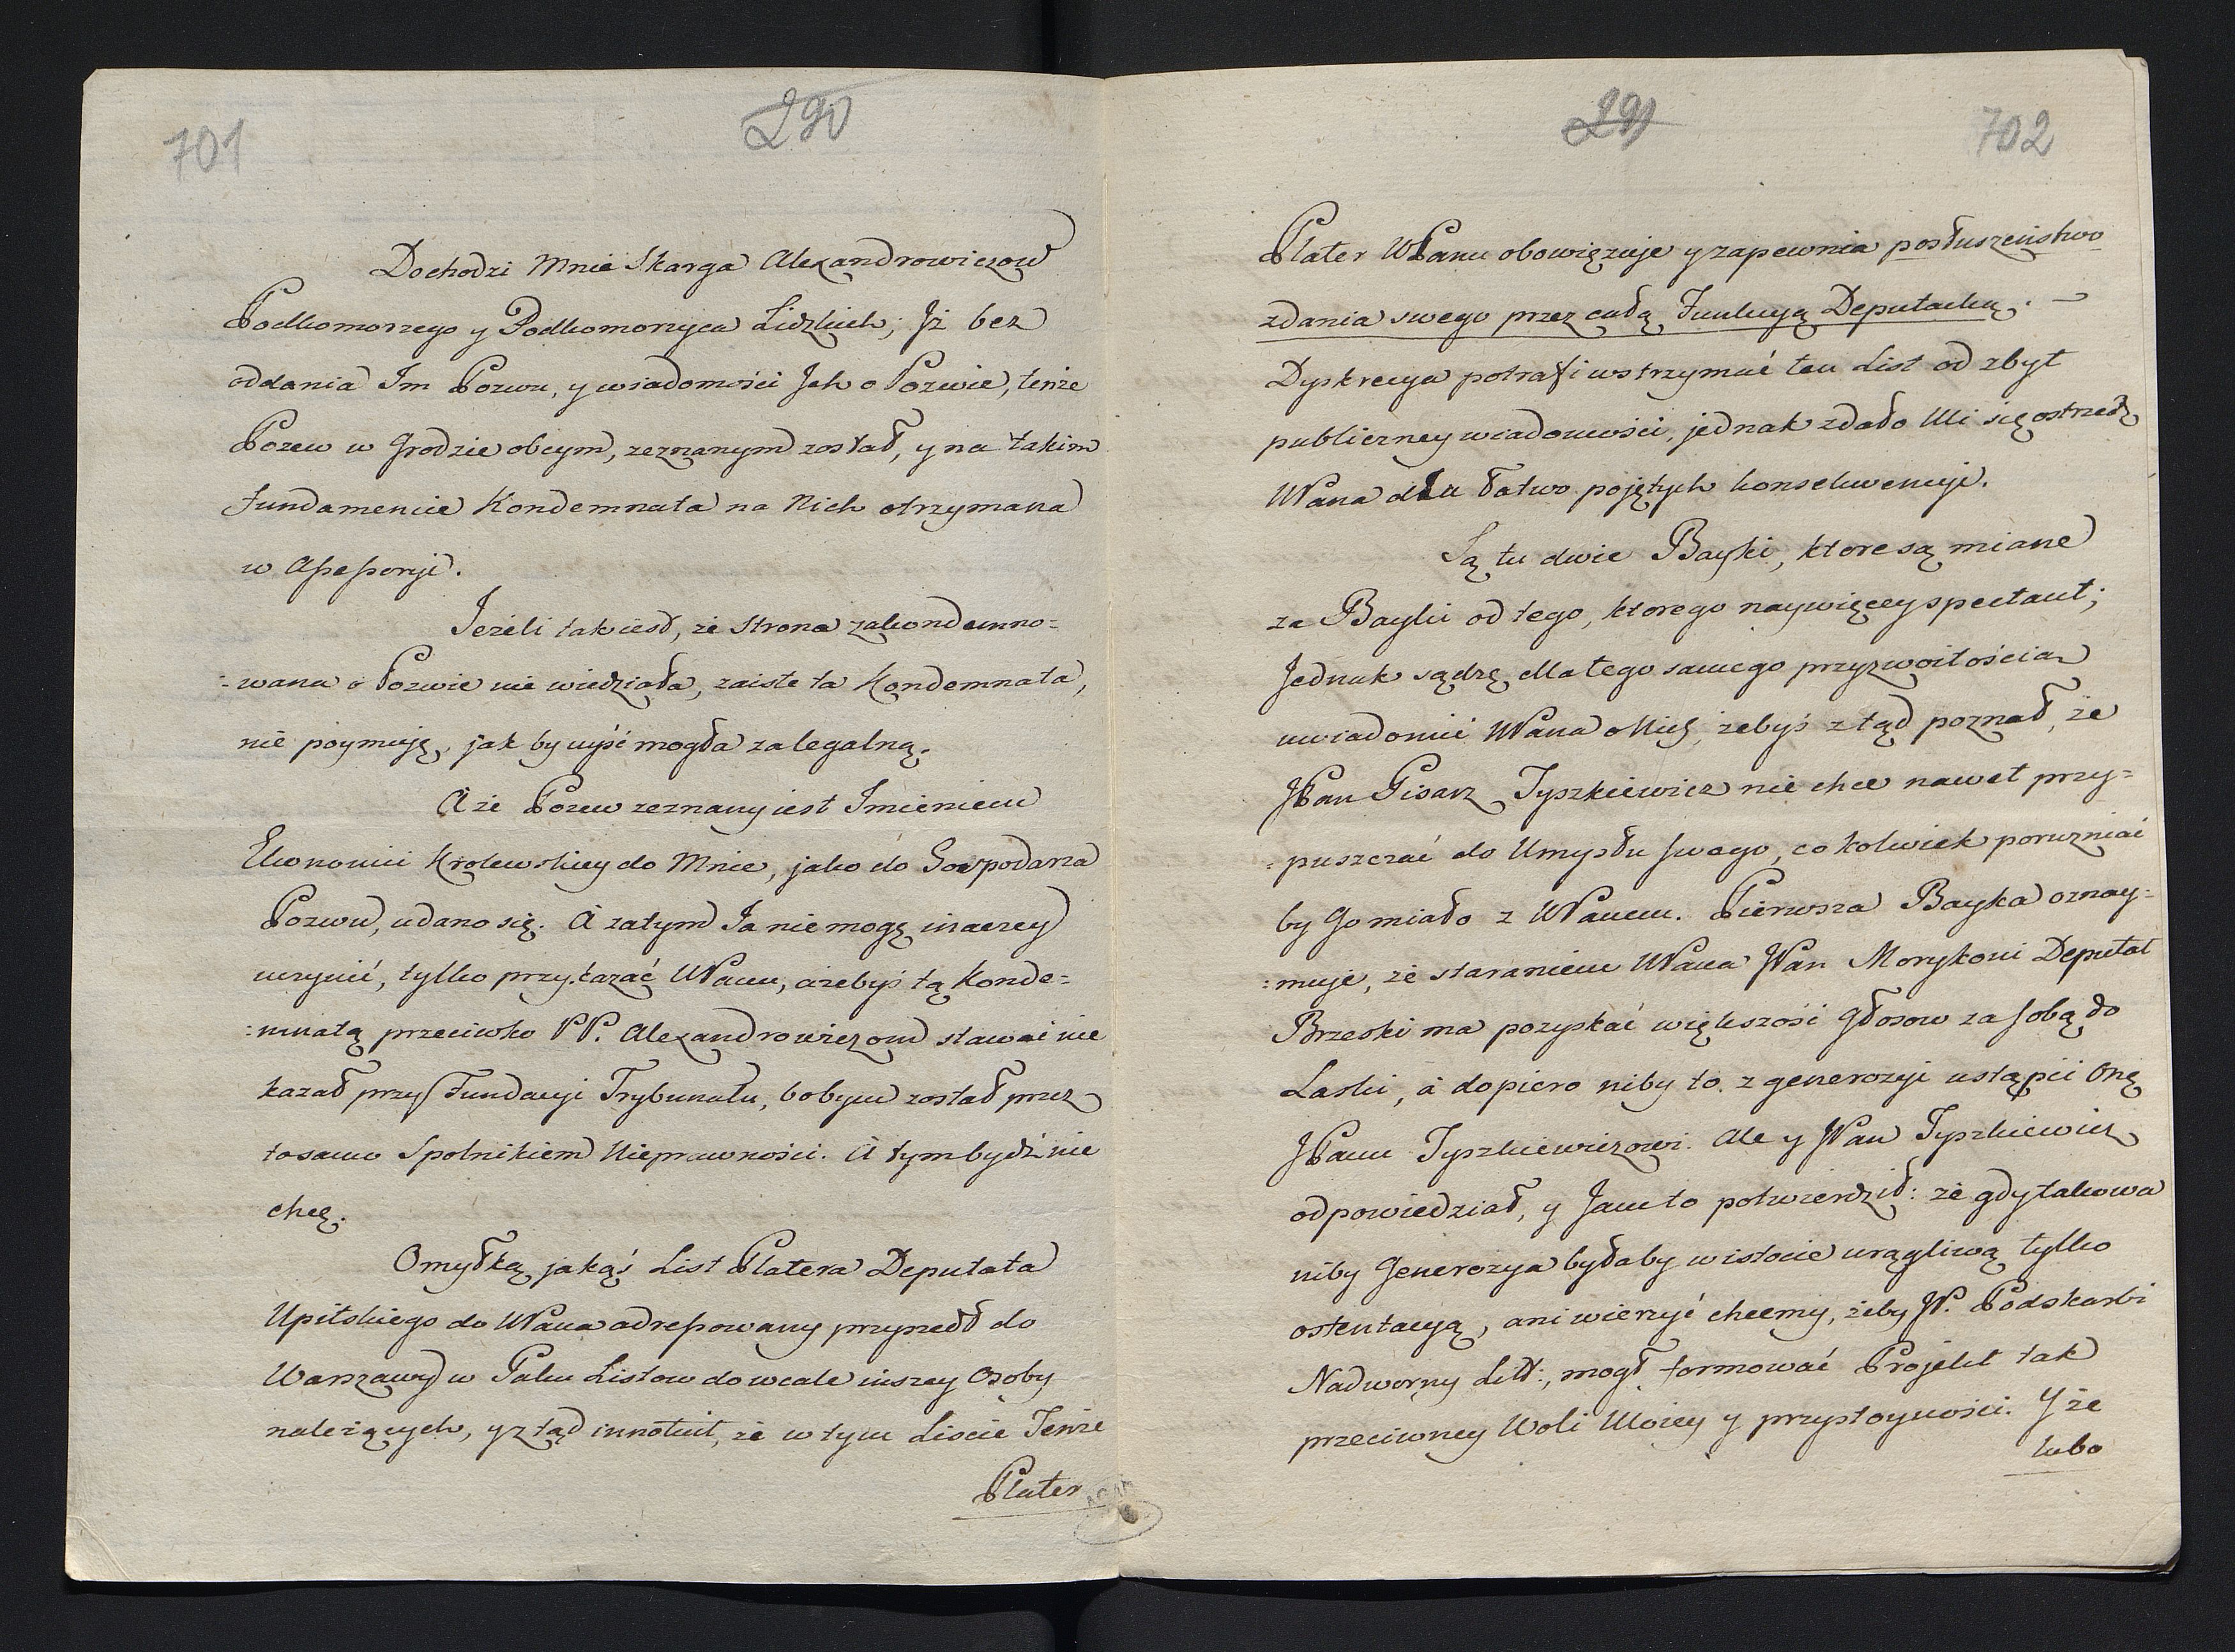 701
290
Dochodzi Mnie Skarga Alexandrowiczow
Podkomorzego y Podkomorzyca Lidzkich; Jż bez
oddania Im Pozwu, y wiadomości Jch o Pozwie, tenże
Pozew w Grodzie obcym, zeznanym został, y na takim
Fundamencie Kondemnata na Nich otrzymana
w Assessoryi.
Jeżeli tak iest, że Strona zakondemno=
=wana o Pozwie nie wiedziała, zaiste ta Kondemnata,
nie poymuię, jak by uyść mogła za legalną.
A że Pozew zeznany iest Imieniem
Ekonomii Krolewskiey do Mnie, jako do Gospodarza
Pozwu, udano się. A zatym Ja nie mogę inaczey
uczynić, tylko przykazać WPanu, ażebyś tą Konde=
=mnatą przeciwko PP. Alexandrowiczom stawać nie
kazał przy Fundacyi Trybunału, bobym został przez
to samo Spolnikiem Nieprawności. A tym bydź nie
chcę.
Omyłką jakąś List Platera Deputata
Upitskiego do WPana adressowany przyszedł do
Warszawy w Paku Listow do wcale inszey Osoby
należących, y ztąd innotuit, że w tym Liscie Tenże
Plater
291
702
Plater WPanu obowięzuje y zapewnia posłuszeństwo
zdania swego przez całą Funkcyą Deputacką.
Dyskrecya potrafi wstrzymać ten List od zbyt
publiczney wiadomości, jednak zdało Mi się ostrzedz
WPana dla łatwo pojętych konsekwencyi.
Są tu dwie Bayki, ktore są miane
za Bayki od tego, ktorego naywięcey spectant;
Jednak sądzę dla tego samego przyzwoitością
uwiadomić WPana o Nich, żebyś ztąd poznał, że
JPan Pisarz Tyszkiewicz nie chce nawet przy=
=puszczać do Umysłu swego, co kolwiek porużniać
by Go miało z WPanem. Pierwsza Bayka oznay=
=muje, że staraniem WPana JPan Morykoni Deputat
Brzeski ma pozyskać większość głosow za sobą do
Laski, a dopiero niby to z generozyi ustąpić Onę
JPanu Tyszkiewiczowi. Ale y JPan Tyszkiewicz
odpowiedział, y Jam to potwierdził: że gdy takowa
niby Generozya byłaby w istocie urągliwą tylko
ostentacyą, ani wierzyć chcemy, żeby JP. Podskarbi
Nadworny Litt:, mogł formować Projekt tak
przeciwney Woli Moiey y przystoyności. Y że
lubo